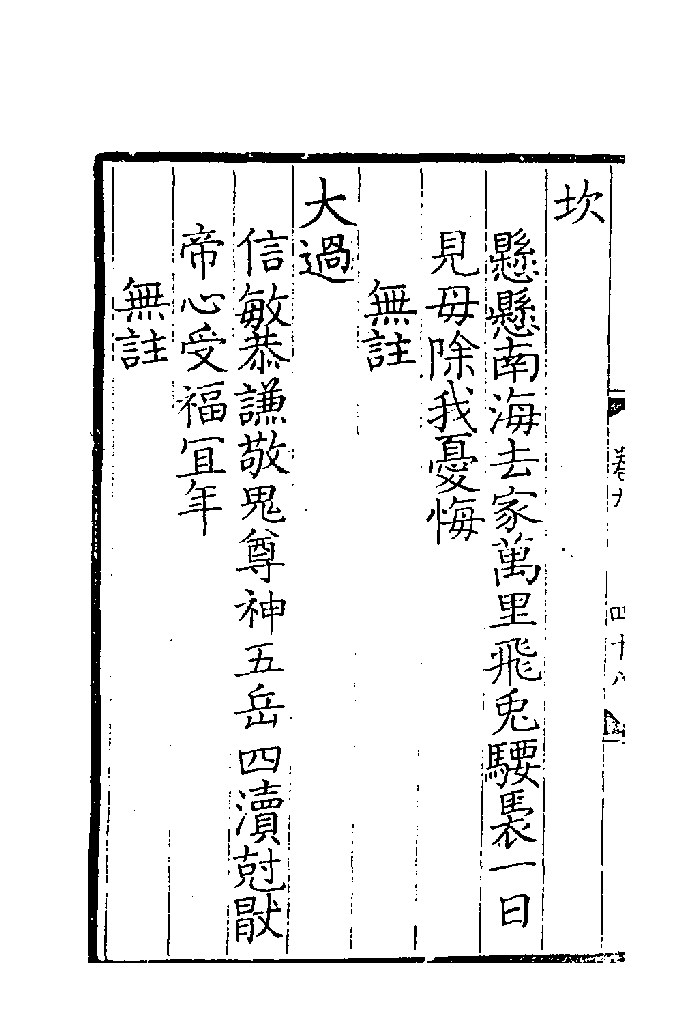 坎
懸懸南海去家萬里飛兎騕褭一日
見母除我憂悔
無註
大過
信敏恭謙敬鬼尊神五岳四瀆尅猒
帝心受福冝年
無註
卷九
四十八